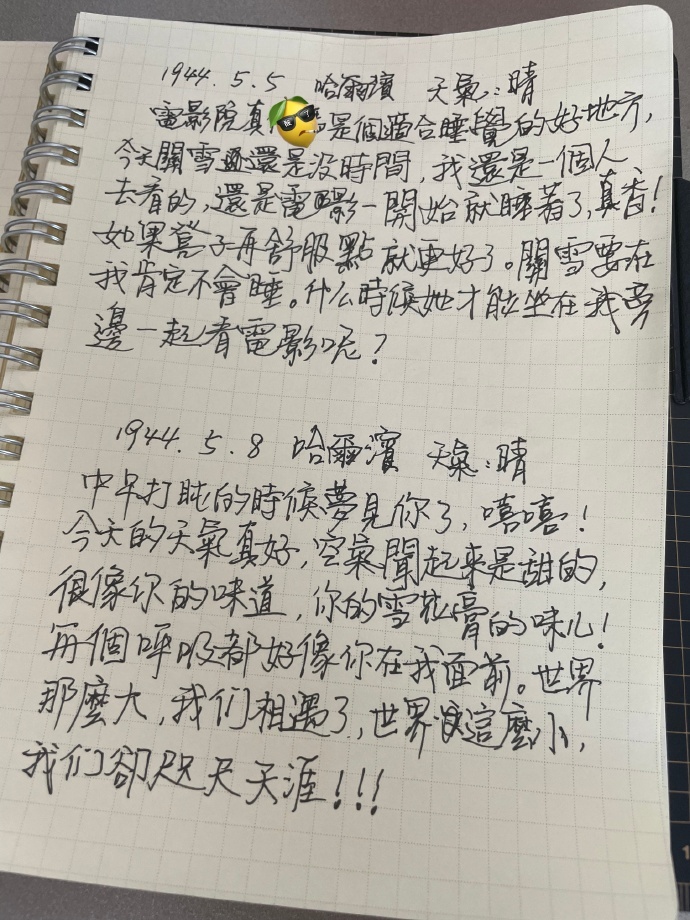 1944.5.5 哈爾濱 天氣:晴
電影院真是個適合睡覺的好地方,
今天關雪還是没時間,我還是一個人
去看的,還是電影一開始就睡著了,真香!
如果凳子再舒服點就更好了。關雪要在
我肯定不會睡。什么時候她才能坐在我旁
邊一起看電影呢?
1944.5.8 哈爾濱 天氣:晴
中午打盹的時候夢見你了,嘻嘻!
今天的天氣真好,空氣聞起来是甜的,
很像你的味道,你的雪花膏的味儿!
每個呼吸都好像你在我面前。世界
那麼大,我们相遇了,世界這麼小,
我们卻咫尺天涯!!!